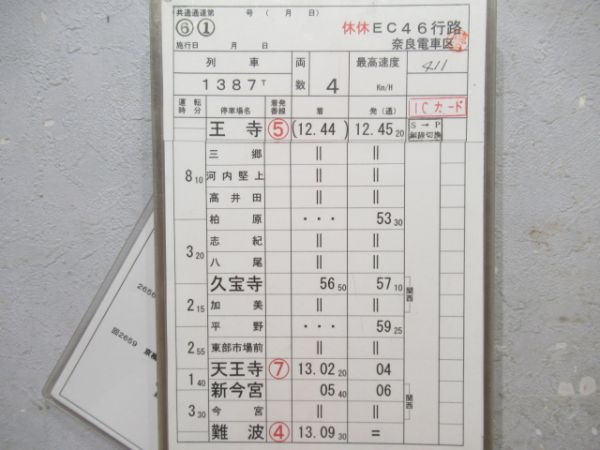 共通通達第 号 ( 月 日)
⑥ ① 休休EC46行路
施行日 月 日 奈良電車区
列車 両数 最高速度 411
1387T 4 Km/H
運転時分 停車場名 着発番線 着 発(通) ICカード
王寺 ⑤ (12.44) 12.45 20 S→P
三郷 || ||
8 10 河内堅上 || ||
高井田 || ||
柏原 ・・・ 53 30
志紀 || ||
3 20 八尾 || ||
久宝寺 56 50 57 10 関西
2 15 加美 || ||
平野 ・・・ 59 25
2 55 東部市場前 || ||
天王寺 ⑦ 13.02 20 04
1 40 新今宮 05 40 06 関西
3 30 今宮 || ||
難波 ④ 13.09 30 =
回2659